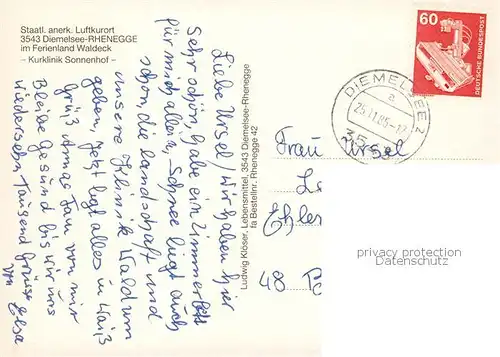 Staatl. anerk. Luftkurort
3543 Diemelsee-RHENEGGE
im Ferienland Waldeck
– Kurklinik Sonnenhof –
Liebe Ursel! Wir haben hir
Sehr schön, habe ein Zimmer
für mich allein, Schnee liegt auch
schon, die Landschaft und
unsere Klinik Waldum
geben, jetzt liegt alles in Waiß
Grüß von mir
Bleibe Gesund bis wir uns
wiedersehn Tausend Grüße
von Elsa
Ludwig Klöser, Lebensmittel, 3543 Diemelsee-Rhenegge
fa Bestellnr. Rhenegge 42
60
DEUTSCHE BUNDESPOST
DIEMELSEE 2
a
25.11.85-17
Frau Ursel
Ehlen
48
privacy protection
Datenschutz